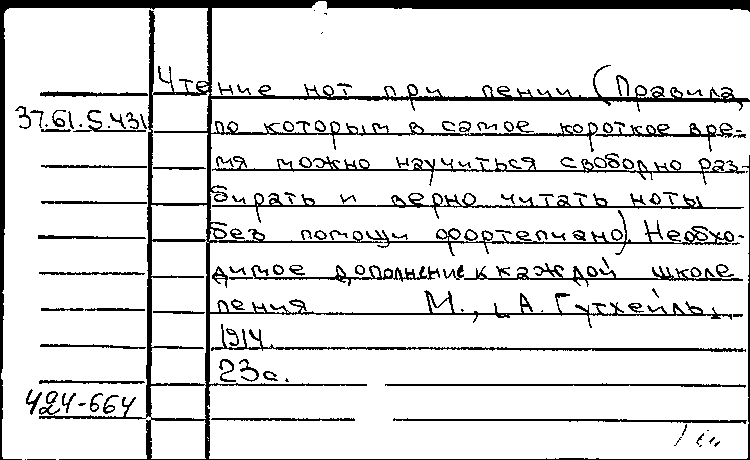 Чтение нот при пении. (Правила,
37.61.5.431
по которым в самое короткое вре-
мя можно научиться свободно раз-
бирать и верно читать ноты
без помощи фортепиано). Необхо-
димое дополнение к каждой школе
пения М., А. Гутхейль,
1914.
23с.
424-664